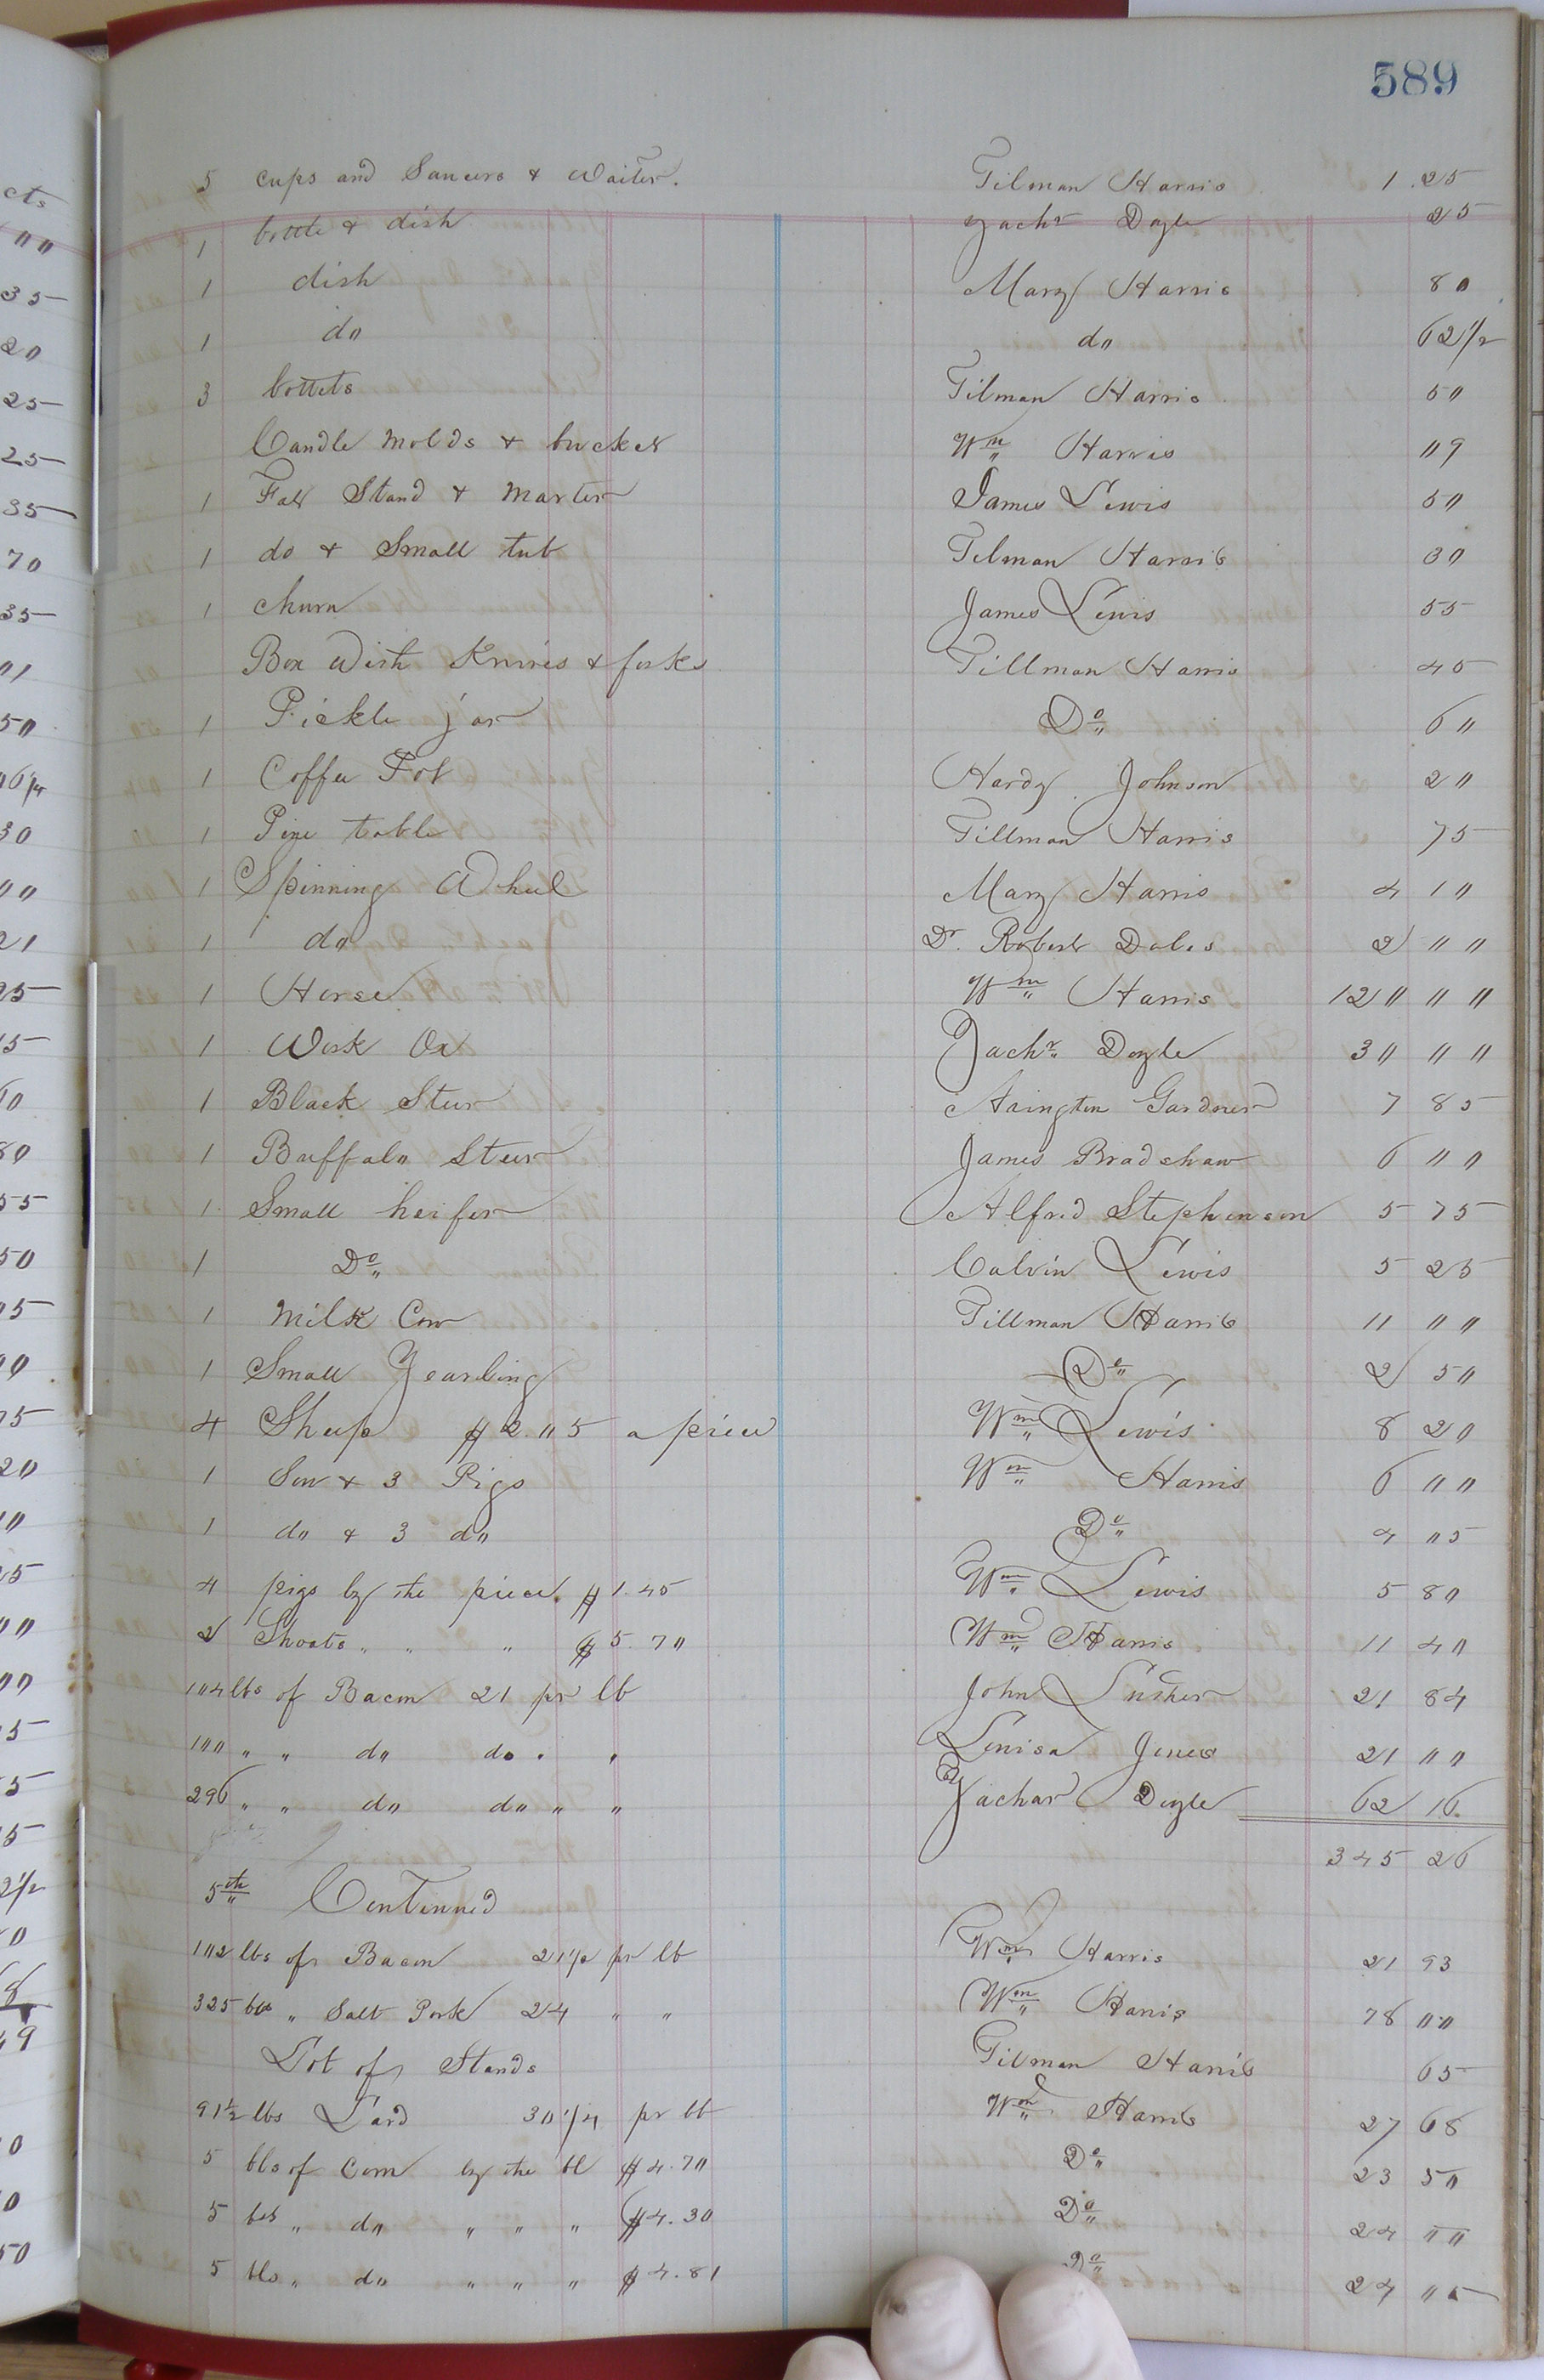 589
5 cups and Saucers & Waiter. Tilman Harris 1.25
1 bottle & dish Zachr Doyle 25
1 dish Mary Harris 80
1 do do 62 1/2
3 bottets Tilman Harris 50
Candle Molds & bucket Wm Harris 09
1 Fat Stand & Marter James Lewis 50
1 do & Small tub Tilman Harris 30
1 churn James Lewis 55
Box with Knives & forks Tillman Harris 40
1 Pickle jar Do 60
1 Coffee Pot Hardy Johnson 20
1 Pine table Tillman Harris 75
1 Spinning Wheel Mary Harris 4 10
1 do Dr. Robert Dales 2 00
1 Horse Wm Harris 120 00
1 Work Ox Zachr Doyle 30 00
1 Black Steer Arington Gardner 7 85
1 Buffalo Steer James Bradshaw 6 00
1 Small heifer Alfred Stephenson 5 75
1 Do Calvin Lewis 5 25
1 Milk Cow Tillman Harris 11 00
1 Small Yearling Do 2 50
4 Sheep $2.05 a piece Wm Lewis 8 20
1 Sow & 3 Pigs Wm Harris 6 00
1 do & 3 do Do 4 05
4 pigs by the piece. $1.45 Wm Lewis 5 80
2 Shoats " " " $5.70 Wm Harris 11 40
104 lbs of Bacon 21 pr lb John 21 84
100 " " do do " " Louisa Jones 21 00
296 " " do do " " Zachar Doyle 62 16
345 26
5th Contenued
102 lbs of Bacon 21 1/2 pr lb Wm Harris 21 93
325 lbs " Salt Pork 24 " " Wm Harris 78 00
Lot of Stands Tilman Harris 65
91 1/2 lbs Lard 30 1/4 pr lb Wm Harris 27 68
5 bls of Corn by the bl $4.70 Do 23 50
5 bls " do " " " $4.30 Do 24 00
5 bls " do " " " $4.81 Do 24 05